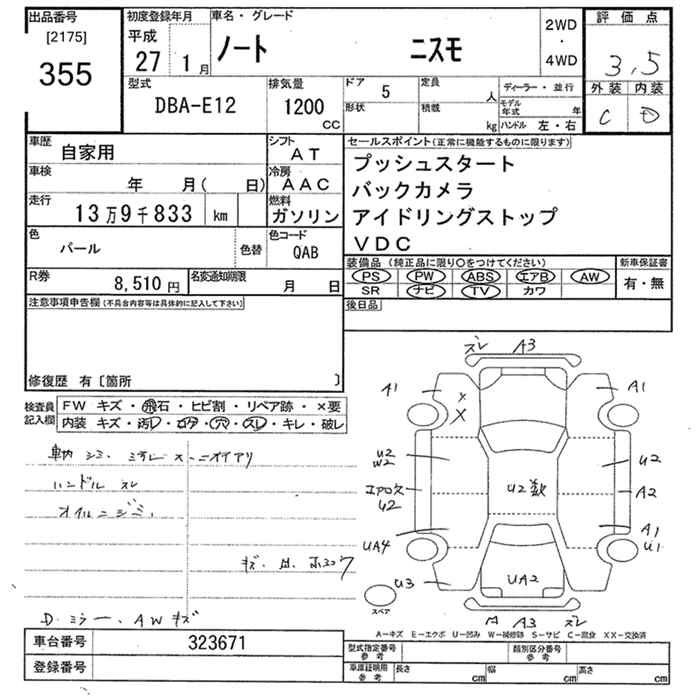 出品番号
[2175]
355
初度登録年月
平成
27 1月
車名・グレード
ノート ニスモ
2WD
・
4WD
評価点
3.5
外装 内装
C D
型式
DBA-E12
排気量
1200
CC
ドア 5
形状
定員 人
積載 kg
ディーラー・並行
モデル年式 年
ハンドル 左・右
車歴
自家用
シフト
AT
車検
年 月( 日)
冷房
AAC
走行
13万9千833 km
燃料
ガソリン
色
パール
色替
色コード
QAB
R券
8,510円
名変通知期限
月 日
セールスポイント(正常に機能するものに限ります)
プッシュスタート
バックカメラ
アイドリングストップ
VDC
装備品 (純正品に限り○をつけてください)
PS PW ABS エアB AW
SR ナビ TV カワ
新車保証書
有・無
後日品
注意事項申告欄(不具合内容等は具体的に記入して下さい)
修復歴 有〔箇所 〕
検査員記入欄
FW キズ・飛石・ヒビ割・リペア跡・×要
内装 キズ・汚レ・コゲ・穴・スレ・キレ・破レ
ハンドル スレ
オイルニジミ
D.ミラー.AWキズ
ズレ A3
A1
X
X
A1
U2
W2
U2
エアロ欠
U2
U2数
A2
UA4
A1
U1
U3
UA2
スペア
A3 ズレ
A―キズ E―エクボ U―凹み W―補修跡 S―サビ C―腐食 XX―交換済
車台番号
323671
登録番号
型式指定番号
参考
類別区分番号
参考
車庫証明用
参考
長さ cm
幅 cm
高さ cm